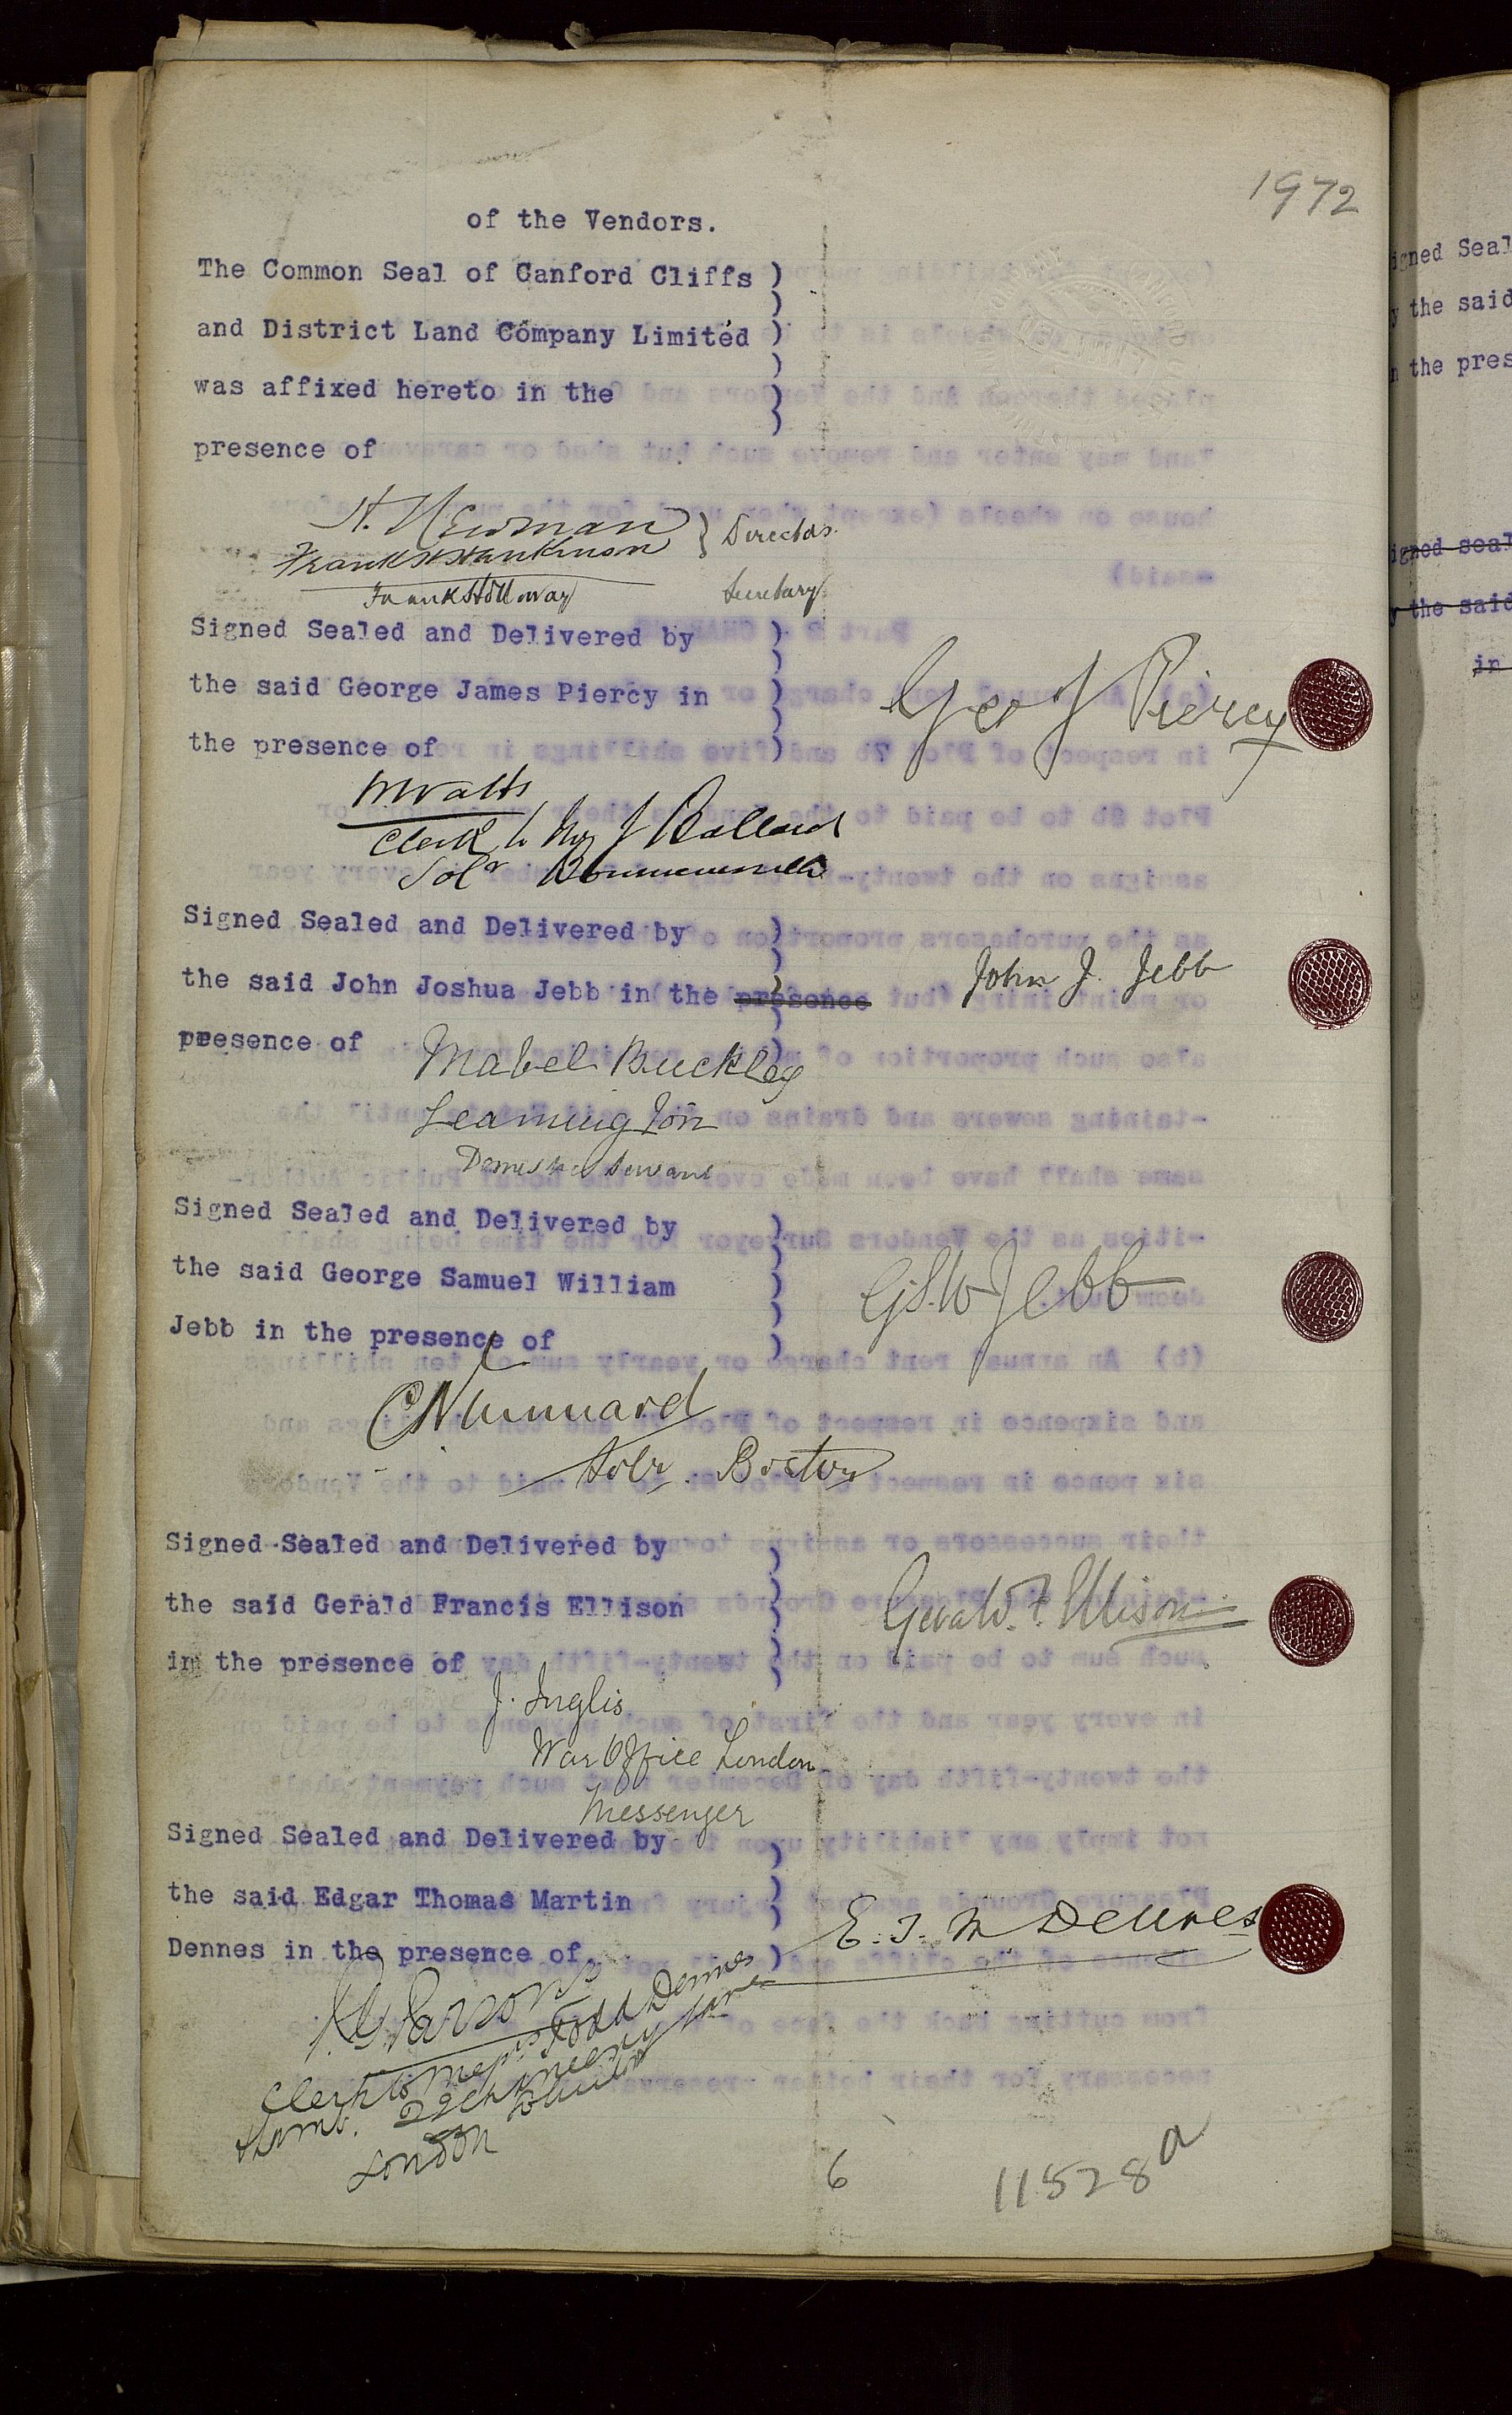 1972
of the Vendors.
The Common Seal of Canford Cliffs )
and District Land Company Limited )
was affixed hereto in the )
presence of
H. Newman } Directors.
Frank Hankinson
Frank Holloway Secretary
Signed Sealed and Delivered by )
the said George James Piercy in )
the presence of )
Geo J Piercy
Watts
Clerk to J Ballard
Solr Bournemouth
Signed Sealed and Delivered by )
the said John Joshua Jebb in the presence
presence of
John J. Jebb
Mabel Buckley
Leamington
Domestic Servant
Signed Sealed and Delivered by )
the said George Samuel William )
Jebb in the presence of )
G.S.W Jebb
Solr. Boston
Signed Sealed and Delivered by )
the said Gerald Francis Ellison )
in the presence of )
Gerald. F. Ellison
J. Inglis
War Office London
Messenger
Signed Sealed and Delivered by )
the said Edgar Thomas Martin )
Dennes in the presence of. )
E. T. M Dennes
Parsons
Clerk to Messrs Todd Dennes
& Lamb. 22 Chancery Lane
London
6
11528a
igned Seal
y the said
n the pres
igned seal
y the said
in